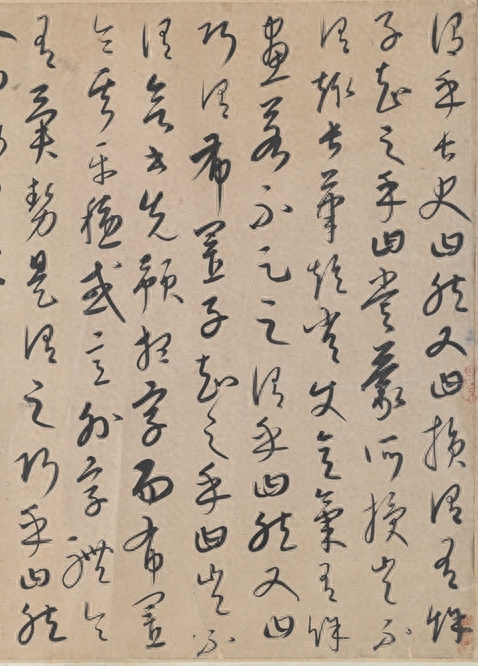 謂乎長史曰然又曰損謂有餘
子知之乎曰嘗蒙所授豈不
謂趣長筆短常使意氣有餘
畫若不足之謂乎曰然又曰
巧謂布置子知之乎曰豈不
謂欲書先預想字而布置
令其平穩或意外字體令
有異勢是謂之巧乎曰然